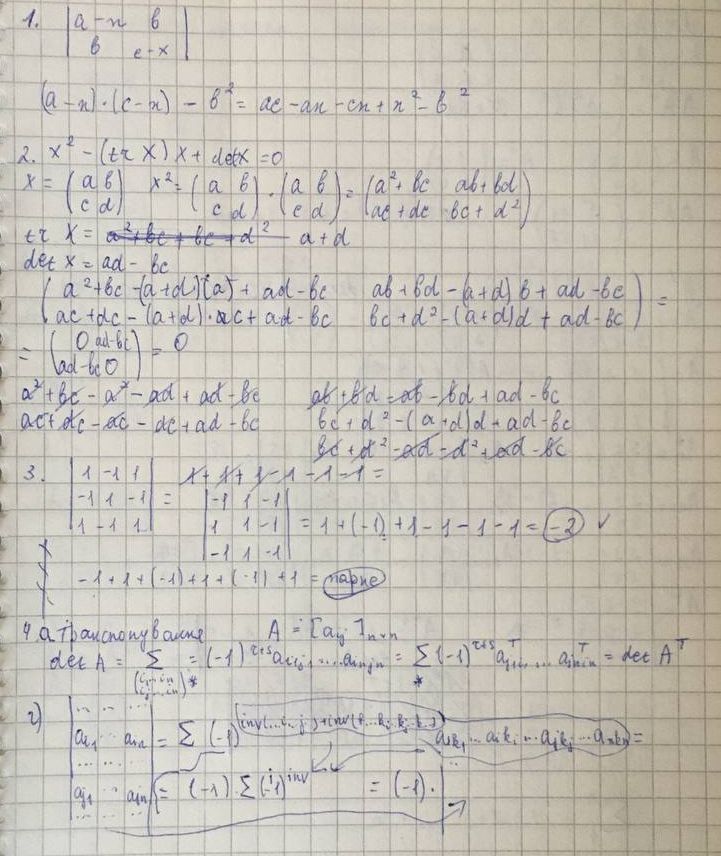 1. | a - x   b |
| b   c - x |
(a - x) · (c - x) - b² = ac - ax - cx + x² - b²
2. x² - (tr X) X + det X = 0
X = (a b)   X² = (a b) · (a b) = (a² + bc   ab + bd)
(c d)   (c d)   (c d)   (ac + dc   bc + d²)
tr X = a² + bc + bc + d²   a + d
det X = ad - bc
( a² + bc - (a + d)(a) + ad - bc   ab + bd - (a + d) b + ad - bc ) =
( ac + dc - (a + d) · c + ad - bc   bc + d² - (a + d) d + ad - bc )
= ( 0   ad - bc ) = 0
( ad - bc   0 )
a² + bc - a² - ad + ad - bc   ab + bd - ab - bd + ad - bc
ac + dc - ac - dc + ad - bc   bc + d² - (a + d) d + ad - bc
bc + d² - ad - d² + ad - bc
3. | 1 -1 1 |   1 + 1 + 1 - 1 - 1 - 1 =
| -1 1 -1 | = | -1 1 -1 |
| 1 -1 1 |   | 1 1 -1 | = 1 + (-1) + 1 - 1 - 1 - 1 = -2 ✓
| -1 1 -1 |
-1 + 1 + (-1) + 1 + (-1) + 1 = парне
4 а транспонування   A = [aij]n×n
det A = Σ = (-1)^(r+s) ai1j1 .... ainjn = Σ (-1)^(r+s) a^T j1i1 ... a^T jnin = det A^T
(i1...in) *   *
(j1...jn)
г) | ... ... ... |
| ai1 ... ain | = Σ (-1)^(inv(...i..j..) + inv(k...ki..kj..k..)) a1k1 ... aiki ... ajkj ... ankn =
| ... ... ... |
| aj1 ... ajn | = (-1) · Σ (-1)^inv   = (-1) ·
| ... ... ... |